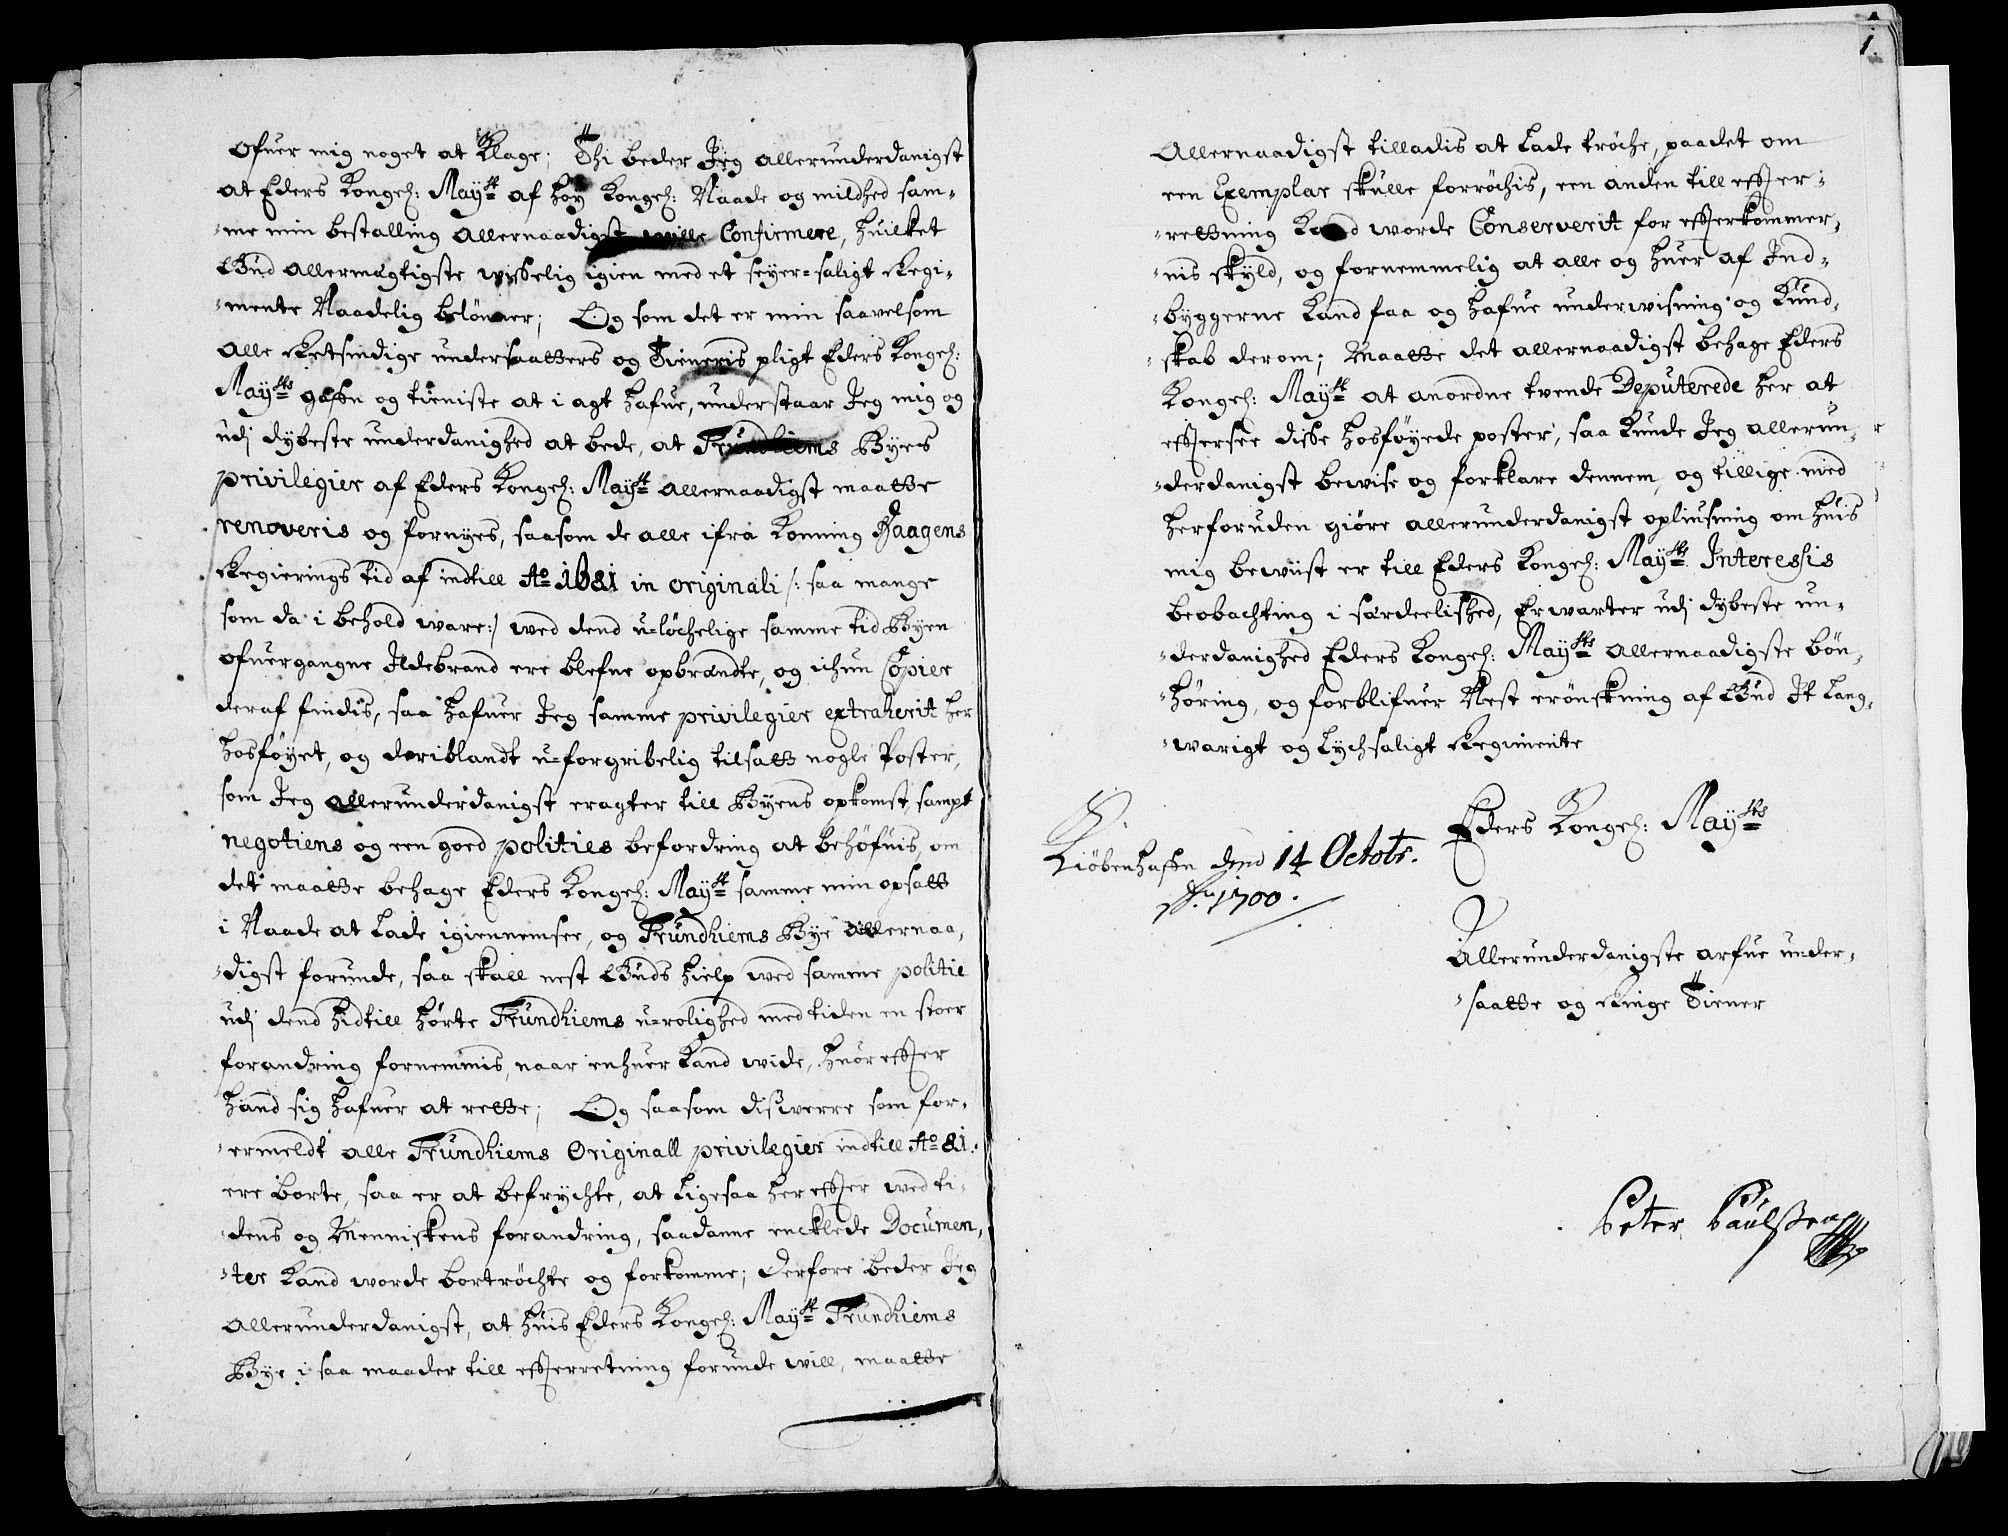 ofuer mig noget at Klage; Thi beder Jeg allerunderdanigst
at Eders Kongel: Mayst af høy Kongel: Naade og mildhed sam-
-me min bestalling allernaadigst wille Confirmere, huilket
Gud allermægtigste wisselig igien med et seyer-saligt Regi-
-mente Naadelig belønner; Og som det er min saavelsom
alle Retsindige undersaatters og Tieneris pligt Eders Kongel:
Maysts gaffn og tieniste at i agt hafue, understaar Jeg mig og
udj dybeste underdanighed at bede, at Trundhiems Byes
privilegier af Eders Kongel: Mayst allernaadigst maatte
renoveris og fornyes, saasom de alle ifra Konning Haagens
Regierings tid af indtill Ao 1681 in originali /: saa mange
som da i behold ware:/ wed dend u-løchelige samme tid Byen
ofuergangne Ildebrand ere blefne opbrændte, og ichun Copier
deraf findis, saa hafuer Jeg samme privilegier extraherit her
hosføyet, og deriblandt u-forgribelig tilsatt nogle Poster,
som Jeg allerunderdanigst eragter till Byens opkomst, sampt
negotiens og een goed polities befordring at behøfuis, om
det maatte behage Eders Kongel: Mayst samme min opsatt
i Naade at Lade igiennemsee, og Trundhiems Bye allernaa-
-digst forunde, saa skall nest Guds hielp wed samme politie
udj dend hidtill hørte Trundhiems u-rolighed med tiden en stoer
forandring fornemmis, naar enhuer kand wide, huor effter
hand sig hafuer at rette; Og saasom dissverre som for-
-ermeldt alle Trundhiems Originall privilegier indtill Ao 81.
ere borte, saa er at befrychte, at ligesaa her effter wed ti-
-dens og Menniskens forandring, saadanne encklede Documen-
-ter kand worde bortrøchte og forkomme; derfore beder Jeg
allerunderdanigst, at huis Eders Kongel: Mayst Trundhiems
Bye i saa maader till effterretning forunde will, maatte
1.
Allernaadigst tilladis at Lade trøche, paadet om
een Exemplar skulle forrøchis, een anden till effter-
-rettning kand worde Conserverit for effterkommer-
-nis skyld, og fornemmelig at alle og huer af Ind-
-byggerne kand faa og hafue underwisning og Kund-
-skab derom; Maatte det allernaadigst behage Eders
Kongel: Mayst at anordne tvende Deputerede her at
efftersee disse hosføyede poster, saa kunde Jeg allerun-
-derdanigst bewise og forklare dennem, og tillige med
herforuden giøre allerunderdanigst opliusning om huis
mig bewiist er till Eders Kongel: Maysts Interessis
beobachting i særdeelished, Erwarter udj dybeste un-
-derdanighed Eders Kongel: Maysts allernaadigste bøn-
-høring, og forblifuer Nest erønskning af Gud It Lang-
-warigt og Lychsaligt Regimente
Eders Kongel: Maysts
Kiøbenhaffn dend 14 Octobr.
Ao. 1700.
Allerunderdanigste arfue under-
-saatte og Ringe Tiener
Peter Paulssen